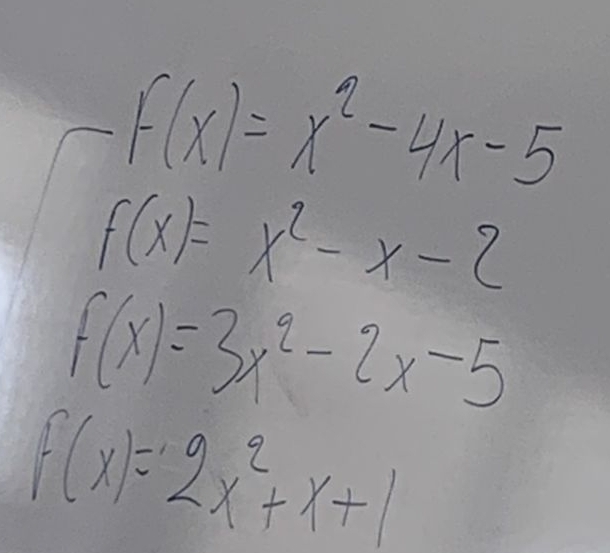 F(x) = x² - 4x - 5
f(x) = x² - x - 2
f(x) = 3x² - 2x - 5
F(x) = 2x² + x + 1